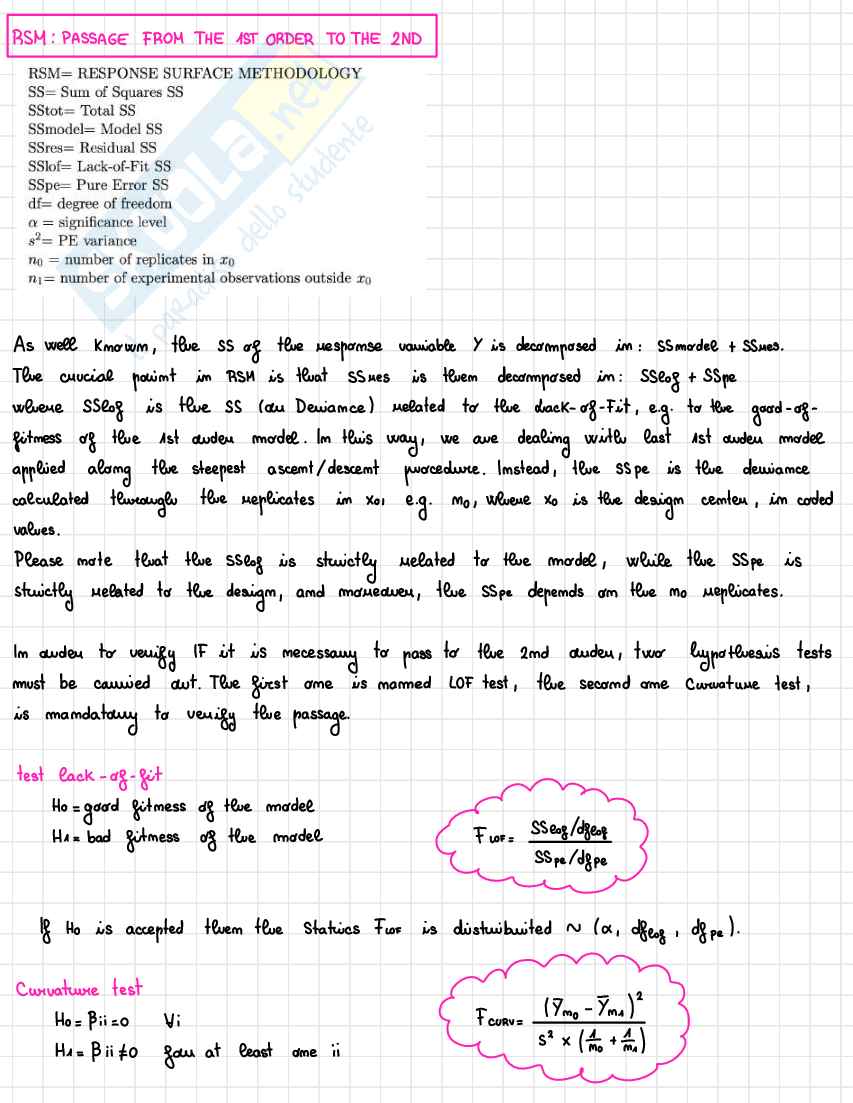 RSM: PASSAGE FROM THE 1ST ORDER TO THE 2ND
RSM= RESPONSE SURFACE METHODOLOGY
SS= Sum of Squares SS
SStot= Total SS
SSmodel= Model SS
SSres= Residual SS
SSlof= Lack-of-Fit SS
SSpe= Pure Error SS
df= degree of freedom
α = significance level
s²= PE variance
n₀ = number of replicates in x₀
n₁= number of experimental observations outside x₀
SKUOLA.net
il paradiso dello studente
As well known, the SS of the response variable Y is decomposed in: SSmodel + SSres.
The crucial point in RSM is that SSres is then decomposed in: SSlof + SSpe
where SSlof is the SS (or Deviance) related to the Lack-of-Fit, e.g. to the good-of-
fitness of the 1st order model. In this way, we are dealing with last 1st order model
applied along the steepest ascent/descent procedure. Instead, the SSpe is the deviance
calculated through the replicates in x₀, e.g. n₀, where x₀ is the design center, in coded
values.
Please note that the SSlof is strictly related to the model, while the SSpe is
strictly related to the design, and moreover, the SSpe depends on the n₀ replicates.
In order to verify IF it is necessary to pass to the 2nd order, two hypothesis tests
must be carried out. The first one is named LOF test, the second one Curvature test,
is mandatory to verify the passage.
test lack-of-fit
H₀ = good fitness of the model
H₁ = bad fitness of the model
F LOF = SSlof/dflof / SSpe/dfpe
If H₀ is accepted then the Statics F LOF is distribuited ~ (α, dflof, dfpe).
Curvature test
H₀ = βii = 0 ∀i
H₁ = βii ≠ 0 for at least one ii
F CURV = (Ȳn₀ - Ȳn₁)² / s² × (1/n₀ + 1/n₁)